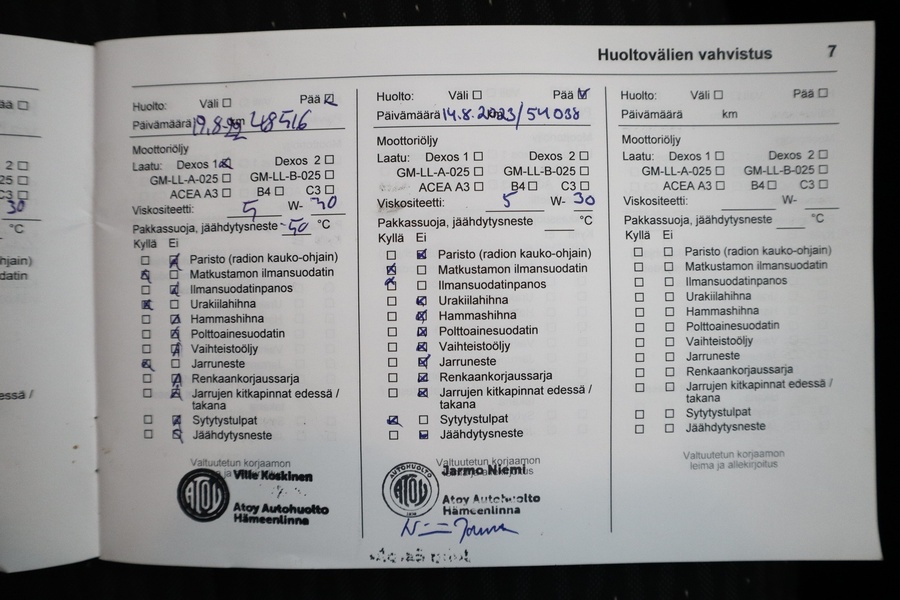 Huoltovälien vahvistus 7
ää ☐
2 ☐
25 ☐
C3 ☐
30
°C
hjain)
datin
essä /
Huolto: Väli ☐ Pää ☑
Päivämäärä 19.8. km 48516
Moottoriöljy
Laatu: Dexos 1 ☑ Dexos 2 ☐
GM-LL-A-025 ☐ GM-LL-B-025 ☐
ACEA A3 ☐ B4 ☐ C3 ☐
Viskositeetti: 5 W- 30
Pakkassuoja, jäähdytysneste -50 °C
Kyllä Ei
☐ ☑ Paristo (radion kauko-ohjain)
☑ ☐ Matkustamon ilmansuodatin
☐ ☑ Ilmansuodatinpanos
☑ ☐ Urakiilahihna
☐ ☑ Hammashihna
☐ ☑ Polttoainesuodatin
☐ ☑ Vaihteistoöljy
☑ ☐ Jarruneste
☐ ☑ Renkaankorjaussarja
☐ ☑ Jarrujen kitkapinnat edessä /
takana
☐ ☑ Sytytystulpat
☐ ☑ Jäähdytysneste
Valtuutetun korjaamon
Ville Koskinen
ATOY
Atoy Autohuolto
Hämeenlinna
Huolto: Väli ☐ Pää ☑
Päivämäärä 14.8.2023/54038
Moottoriöljy
Laatu: Dexos 1 ☐ Dexos 2 ☐
GM-LL-A-025 ☐ GM-LL-B-025 ☐
ACEA A3 ☐ B4 ☐ C3 ☐
Viskositeetti: 5 W- 30
Pakkassuoja, jäähdytysneste °C
Kyllä Ei
☐ ☑ Paristo (radion kauko-ohjain)
☑ ☐ Matkustamon ilmansuodatin
☑ ☐ Ilmansuodatinpanos
☐ ☑ Urakiilahihna
☐ ☑ Hammashihna
☐ ☑ Polttoainesuodatin
☐ ☑ Vaihteistoöljy
☐ ☑ Jarruneste
☐ ☑ Renkaankorjaussarja
☐ ☑ Jarrujen kitkapinnat edessä /
takana
☑ ☐ Sytytystulpat
☐ ☑ Jäähdytysneste
Valtuutetun korjaamon
Jarmo Niemi
AUTOHUOLTO
ATOY
Atoy Autohuolto
Hämeenlinna
Huolto: Väli ☐ Pää ☐
Päivämäärä km
Moottoriöljy
Laatu: Dexos 1 ☐ Dexos 2 ☐
GM-LL-A-025 ☐ GM-LL-B-025 ☐
ACEA A3 ☐ B4 ☐ C3 ☐
Viskositeetti: W-
Pakkassuoja, jäähdytysneste °C
Kyllä Ei
☐ ☐ Paristo (radion kauko-ohjain)
☐ ☐ Matkustamon ilmansuodatin
☐ ☐ Ilmansuodatinpanos
☐ ☐ Urakiilahihna
☐ ☐ Hammashihna
☐ ☐ Polttoainesuodatin
☐ ☐ Vaihteistoöljy
☐ ☐ Jarruneste
☐ ☐ Renkaankorjaussarja
☐ ☐ Jarrujen kitkapinnat edessä /
takana
☐ ☐ Sytytystulpat
☐ ☐ Jäähdytysneste
Valtuutetun korjaamon
leima ja allekirjoitus